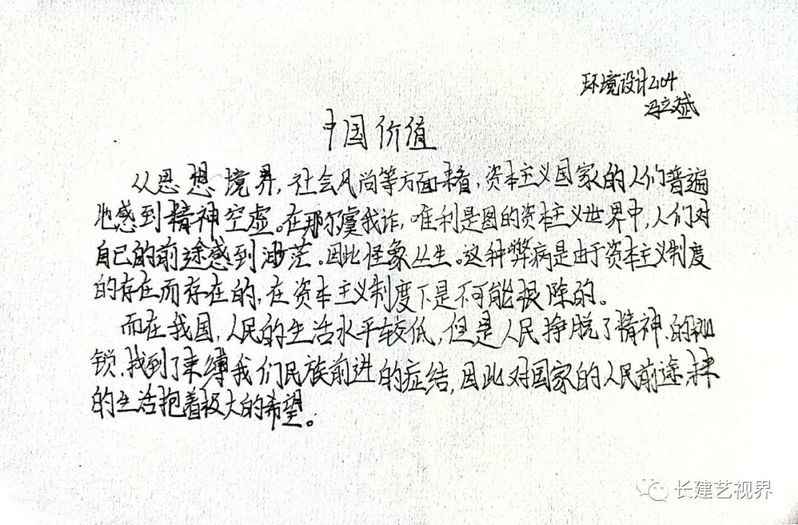 环境设计2104
冯文斌
中国价值
从思想境界,社会风尚等方面来看,资本主义国家的人们普遍
地感到精神空虚。在那尔虞我诈,唯利是图的资本主义世界中,人们对
自己的前途感到渺茫。因此怪象丛生。这种弊病是由于资本主义制度
的存在而存在的,在资本主义制度下是不可能根除的。
而在我国,人民的生活水平较低,但是人民挣脱了精神的枷
锁,找到了束缚我们民族前进的症结,因此对国家的人民前途未来
的生活抱着极大的希望。
长建艺视界